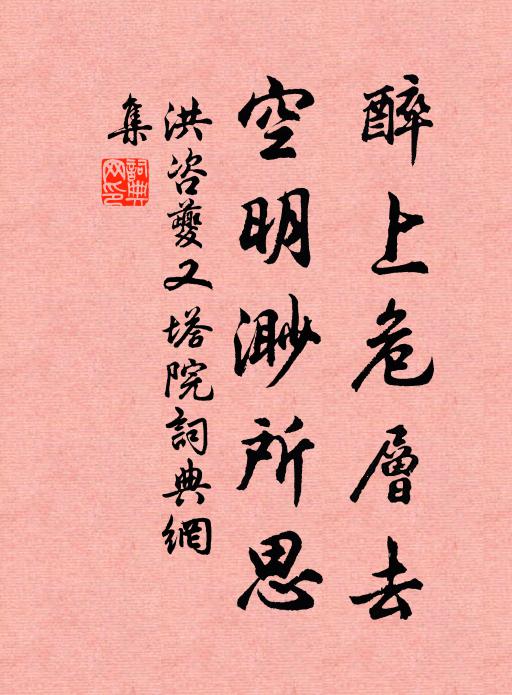 醉上危層去
空明渺所思
洪咨夔又塔院詞典網
集
詞典網印